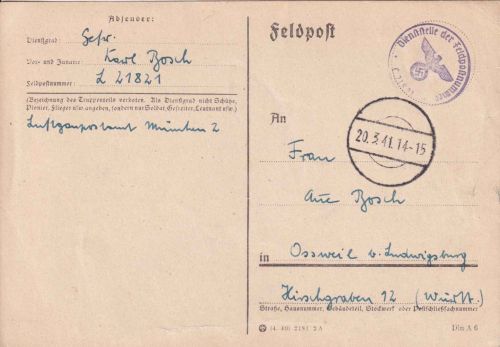 Absender:
Dienstgrad: Gefr.
Vor- und Zuname: Karl Bosch
Feldpostnummer: L 21821
(Bezeichnung des Truppenteils verboten. Als Dienstgrad nicht Schütze,
Pionier, Flieger usw. angeben, sondern nur Soldat, Gefreiter, Leutnant usw.)
Luftgaupostamt München 2
Feldpost
Dienststelle der Feldpostnummer
20.3.41.14-15
An
Frau
Bosch
in Ossweil b. Ludwigsburg
Hirschgraben 12 (Württ.)
Straße, Hausnummer, Gebäudeteil, Stockwerk oder Postschließfachnummer
(4. 40) 2181 2A
Din A 6